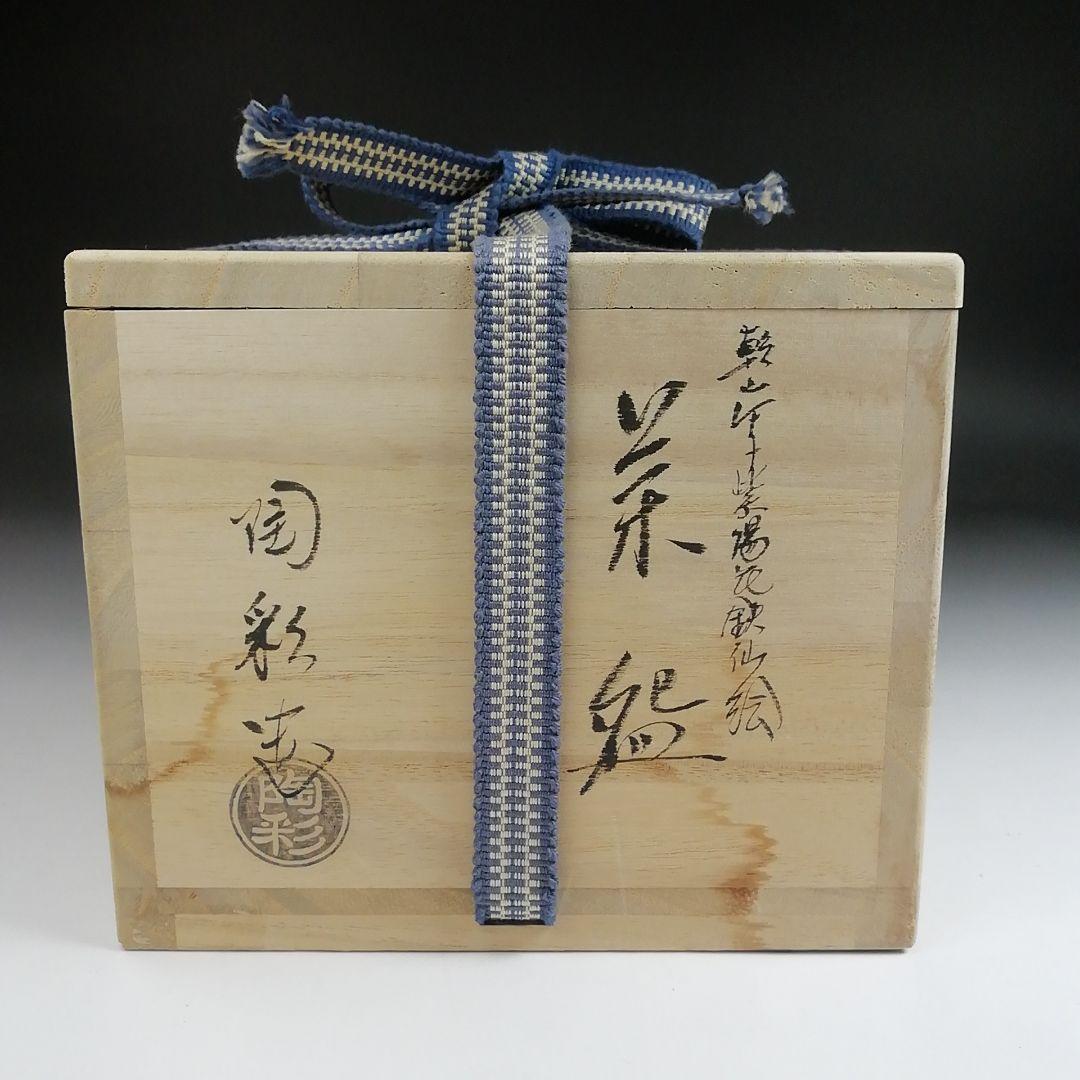 乾山写紫陽花鉄仙絵
茶盌
陶彩造
陶彩